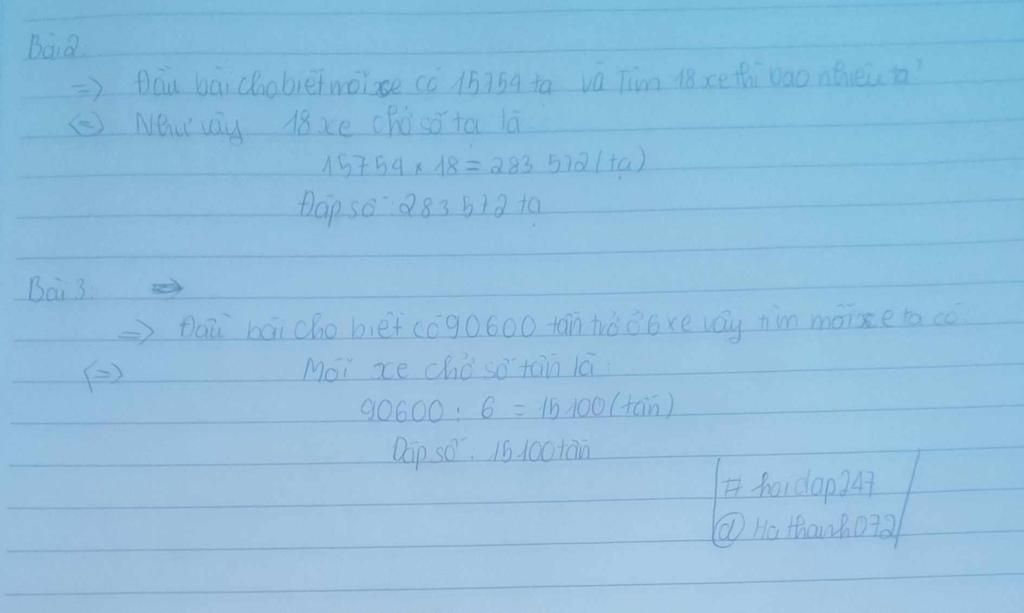 Bài 2
=> Đầu bài cho biết mỗi xe có 15754 tạ và Tìm 18 xe thì bao nhiêu tạ
<=> Như vậy 18 xe chở số tạ là
15754 x 18 = 283 572 (tạ)
Đáp số : 283 572 tạ
Bài 3: =>
=> Đầu bài cho biết có 90600 tấn trở ở 6 xe vậy tìm mỗi xe ta có
(=> Mỗi xe chở số tấn là :
90600 : 6 = 15 100 (tấn)
Đáp số : 15 100 tấn
# hoidap247
@ Ha thanh072